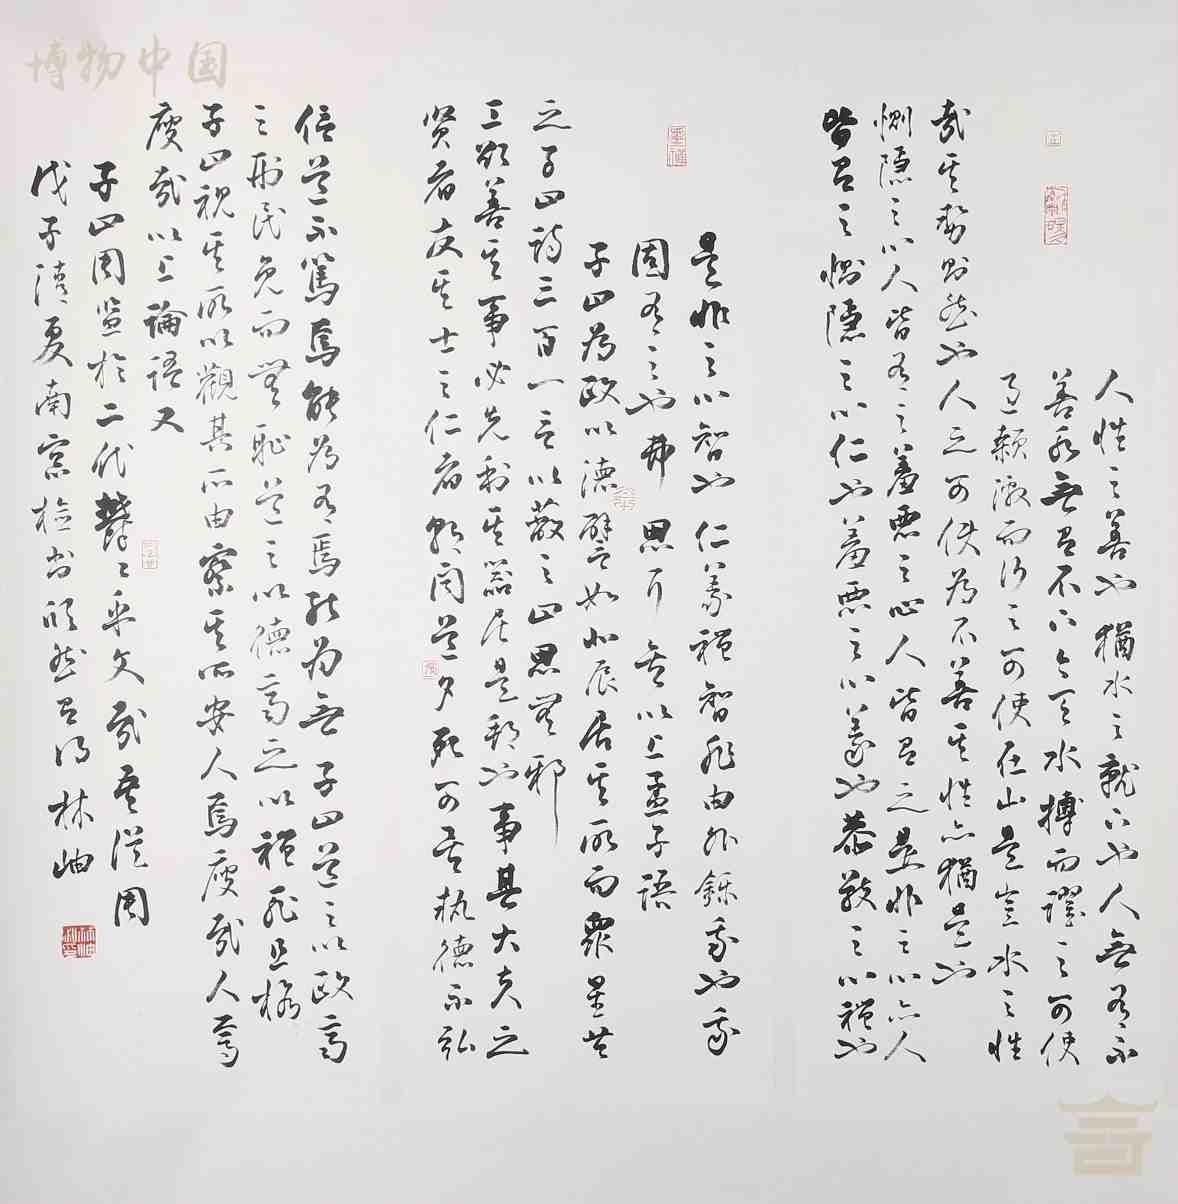 博物中国
人性之善也猶水之就下也人無有不
善水無有不下今夫水搏而躍之可使
過顙激而行之可使在山是豈水之性
哉其勢則然也人之可使為不善其性亦猶是也
惻隱之心人皆有之羞惡之心人皆有之是非之心亦人
皆有之惻隱之心仁也羞惡之心義也恭敬之心禮也
是非之心智也仁義禮智非由外鑠我也我
固有之也弗思耳矣以上孟子語
子曰為政以德譬如北辰居其所而眾星共
之子曰詩三百一言以蔽之曰思無邪
工欲善其事必先利其器居是邦也事其大夫之
賢者友其士之仁者朝聞道夕死可矣執德不弘
信道不篤焉能為有焉能為無子曰道之以政齊
之刑民免而無恥道之以德齊之以禮恥且格
子曰視其所以觀其所由察其所安人焉廋哉人焉
廋哉以上論語又
子曰周監於二代鬱〻乎文哉吾從周
戊子清夏南窗檢書欣然有得林岫